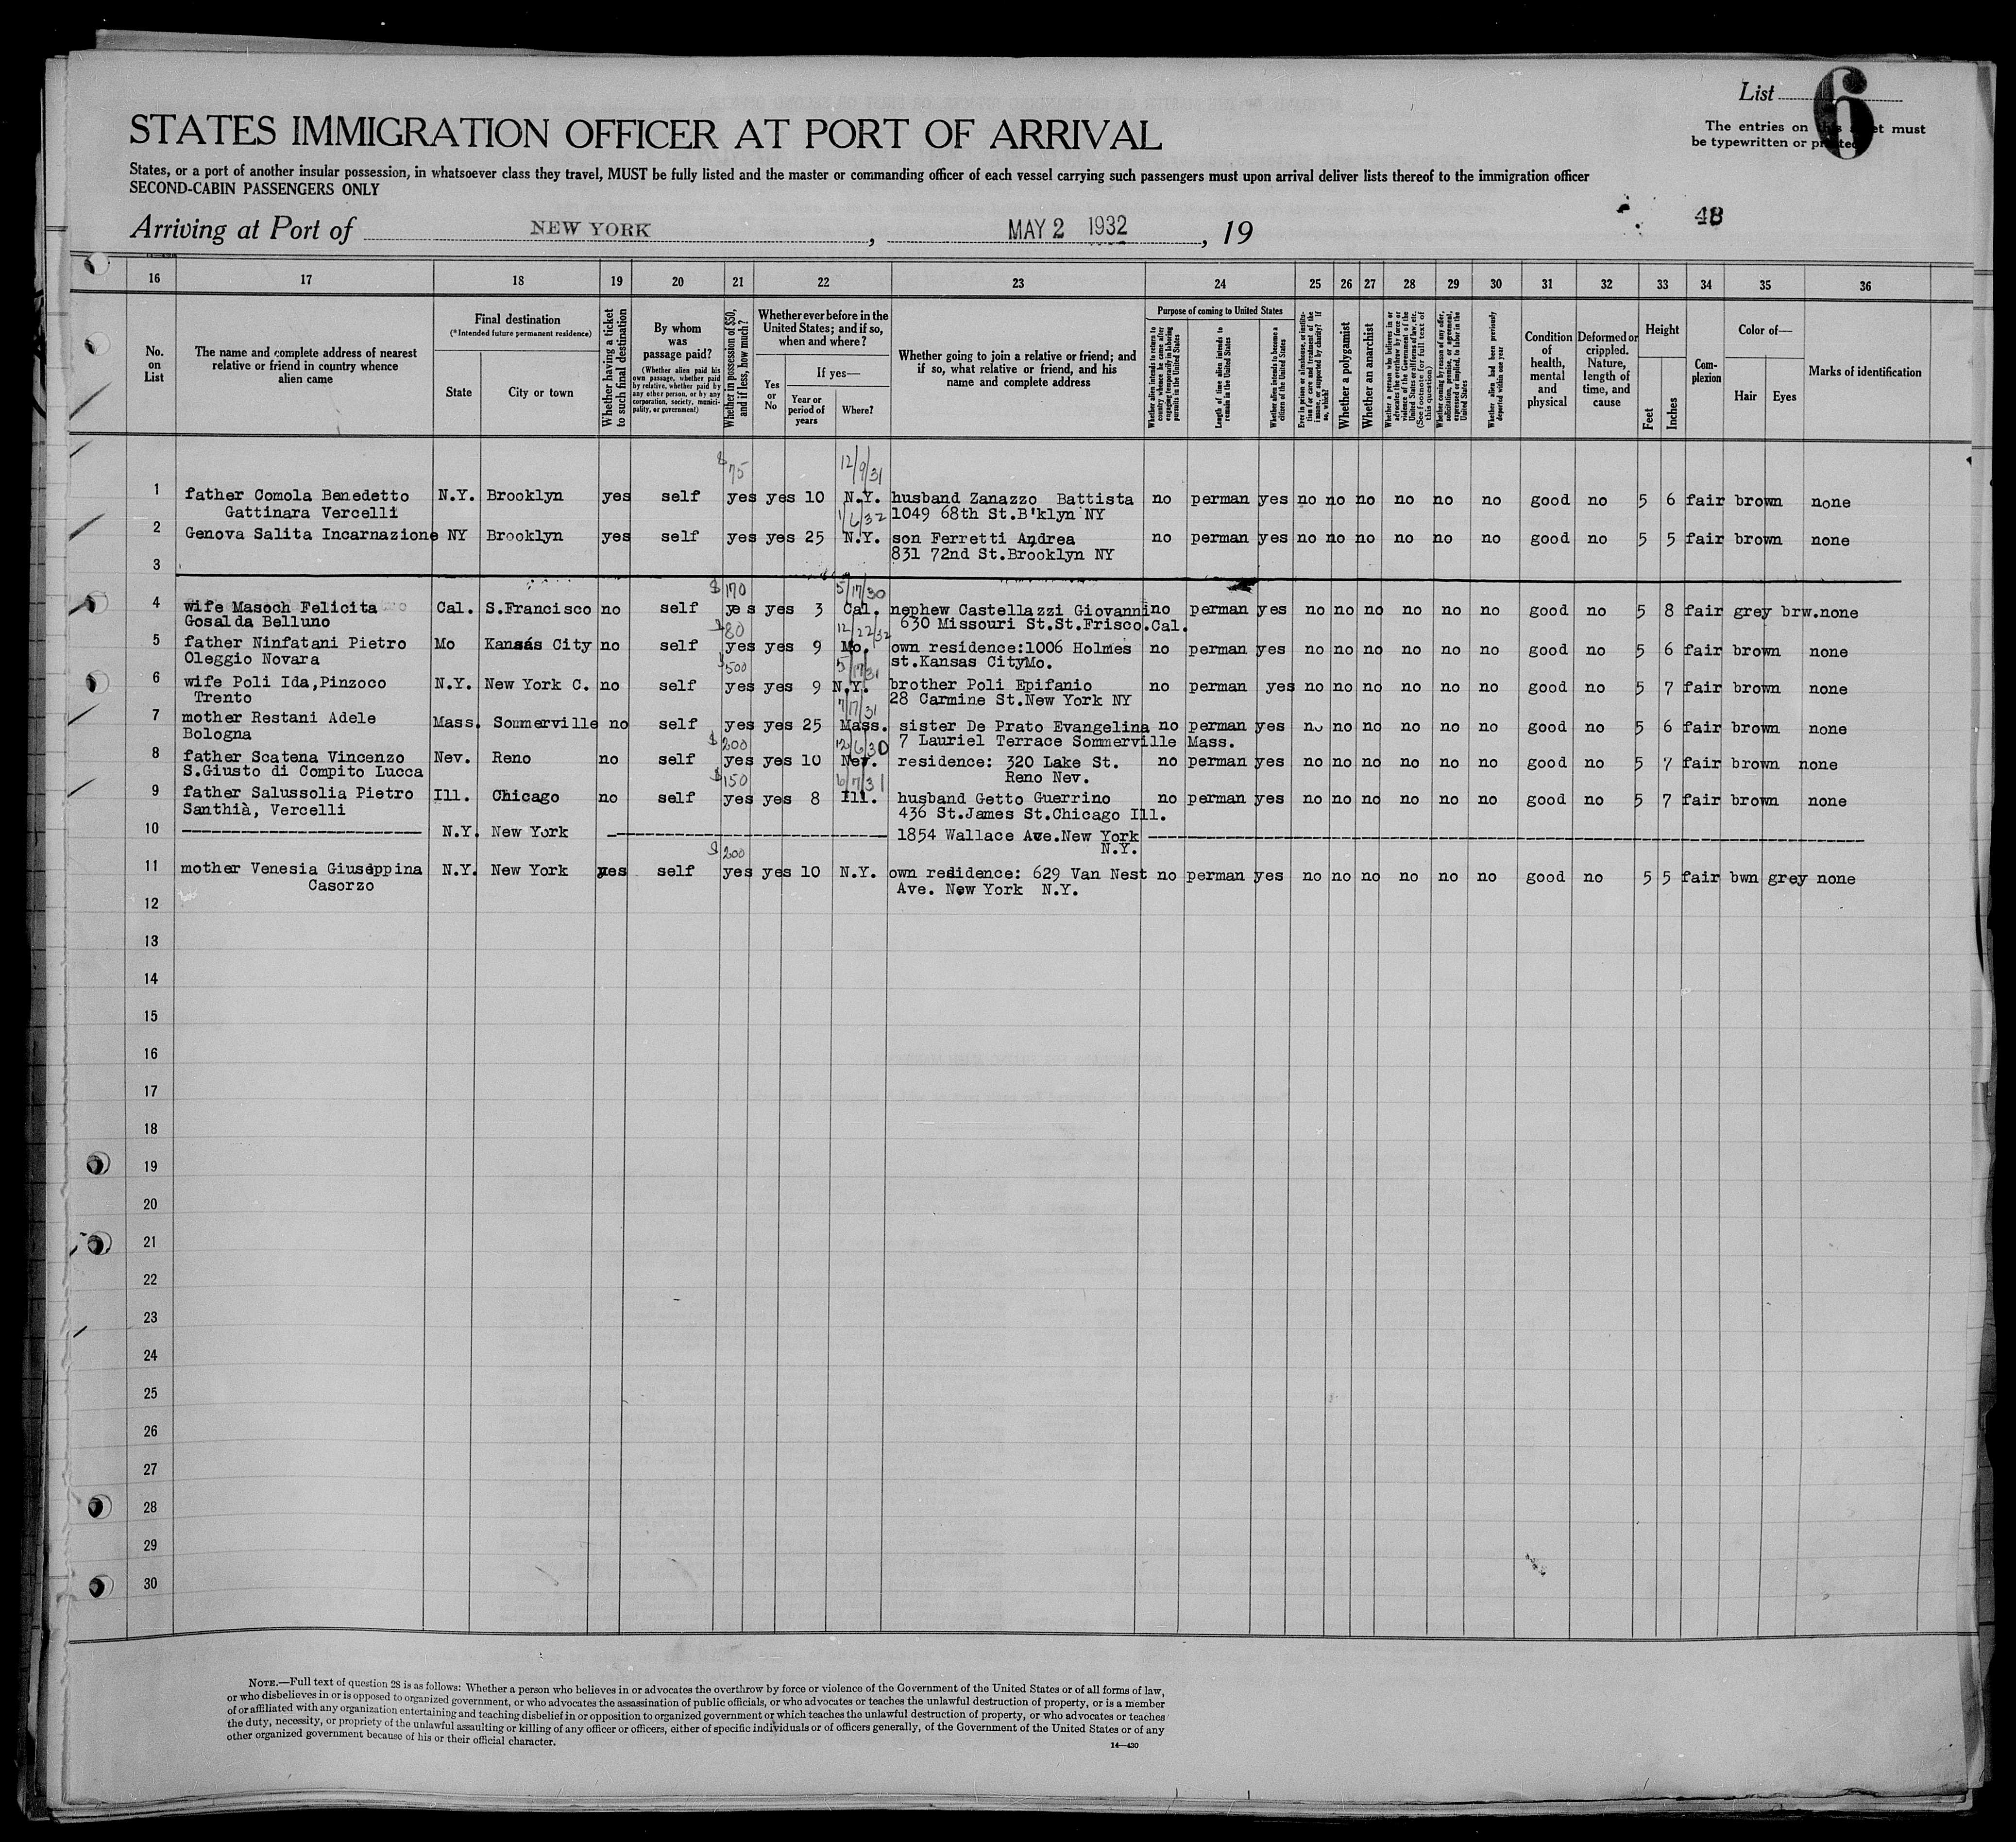 List 6
The entries on this sheet must
be typewritten or printed
STATES IMMIGRATION OFFICER AT PORT OF ARRIVAL
States, or a port of another insular possession, in whatsoever class they travel, MUST be fully listed and the master or commanding officer of each vessel carrying such passengers must upon arrival deliver lists thereof to the immigration officer
SECOND-CABIN PASSENGERS ONLY
48
Arriving at Port of NEW YORK, MAY 2 1932, 19
16 17 18 19 20 21 22 23 24 25 26 27 28 29 30 31 32 33 34 35 36
No. on List
The name and complete address of nearest relative or friend in country whence alien came
Final destination
(*Intended future permanent residence)
State
City or town
Whether having a ticket to such final destination
By whom was passage paid?
(Whether alien paid his own passage, whether paid by relative, whether paid by any other person, or by any corporation, society, municipality, or government)
Whether in possession of $50, and if less, how much?
Whether ever before in the United States; and if so, when and where?
Yes or No
If yes—
Year or period of years
Where?
Whether going to join a relative or friend; and if so, what relative or friend, and his name and complete address
Purpose of coming to United States
Whether alien intends to return to country whence he came after engaging temporarily in laboring pursuits in the United States
Length of time alien intends to remain in the United States
Whether alien intends to become a citizen of the United States
Ever in prison or almshouse, or institution for care and treatment of the insane, or supported by charity? If so, which?
Whether a polygamist
Whether an anarchist
Whether a person who believes in or advocates the overthrow by force or violence of the Government of the United States or all forms of law, etc. (See footnote for full text of this question)
Whether coming by reason of any offer, solicitation, promise, or agreement, expressed or implied, to labor in the United States
Whether alien had been previously deported within one year
Condition of health, mental and physical
Deformed or crippled. Nature, length of time, and cause
Height
Feet
Inches
Complexion
Color of—
Hair
Eyes
Marks of identification
$75 12/9/31
1 father Comola Benedetto N.Y. Brooklyn yes self yes yes 10 N.Y. husband Zanazzo Battista no perman yes no no no no no no good no 5 6 fair brown none
Gattinara Vercelli 1/6/32 1049 68th St.B'klyn NY
2 Genova Salita Incarnazione NY Brooklyn yes self yes yes 25 N.Y. son Ferretti Andrea no perman yes no no no no no no good no 5 5 fair brown none
831 72nd St.Brooklyn NY
3
$170 5/17/30
4 wife Masoch Felicita Cal. S.Francisco no self yes yes 3 Cal. nephew Castellazzi Giovanni no perman yes no no no no no no good no 5 8 fair grey brw.none
Gosalda Belluno $80 12/22/32 630 Missouri St.St.Frisco.Cal.
5 father Ninfatani Pietro Mo Kansas City no self yes yes 9 Mo. own residence:1006 Holmes no perman yes no no no no no no good no 5 6 fair brown none
Oleggio Novara $500 5/17/31 st.Kansas CityMo.
6 wife Poli Ida,Pinzoco N.Y. New York C. no self yes yes 9 N.Y. brother Poli Epifanio no perman yes no no no no no no good no 5 7 fair brown none
Trento 7/17/31 28 Carmine St.New York NY
7 mother Restani Adele Mass. Sommerville no self yes yes 25 Mass. sister De Prato Evangelina no perman yes no no no no no no good no 5 6 fair brown none
Bologna $200 12/6/30 7 Lauriel Terrace Sommerville Mass.
8 father Scatena Vincenzo Nev. Reno no self yes yes 10 Nev. residence: 320 Lake St. no perman yes no no no no no no good no 5 7 fair brown none
S.Giusto di Compito Lucca $150 6/7/31 Reno Nev.
9 father Salussolia Pietro Ill. Chicago no self yes yes 8 Ill. husband Getto Guerrino no perman yes no no no no no no good no 5 7 fair brown none
Santhià, Vercelli 436 St.James St.Chicago Ill.
10 N.Y. New York 1854 Wallace Ave.New York
N.Y.
$200
11 mother Venesia Giuseppina N.Y. New York yes self yes yes 10 N.Y. own residence: 629 Van Nest no perman yes no no no no no no good no 5 5 fair bwn grey none
Casorzo Ave. New York N.Y.
12
13
14
15
16
17
18
19
20
21
22
23
24
25
26
27
28
29
30
NOTE.—Full text of question 28 is as follows: Whether a person who believes in or advocates the overthrow by force or violence of the Government of the United States or of all forms of law,
or who disbelieves in or is opposed to organized government, or who advocates the assassination of public officials, or who advocates or teaches the unlawful destruction of property, or is a member
of or affiliated with any organization entertaining and teaching disbelief in or opposition to organized government or which teaches the unlawful destruction of property, or who advocates or teaches
the duty, necessity, or propriety of the unlawful assaulting or killing of any officer or officers, either of specific individuals or of officers generally, of the Government of the United States or of any
other organized government because of his or their official character.
14—430